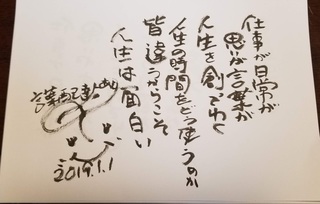 仕事が日常が
思いが言葉が
人生を創ってゆく
人生の時間をどう使うのか
皆違うからこそ
人生は面白い
2019.1.1